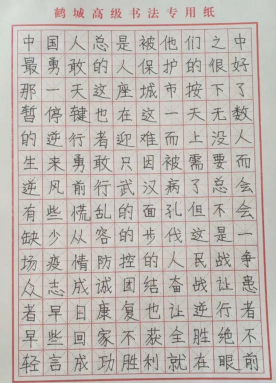 鹤城高级书法专用纸
中国人总是被他们之中
最勇敢的人保护的很好
那一天这座城市按下了
暂停键也在这一天无数
的逆行者迎难而上没人
生来勇敢只因被需要而
逆风前行武汉病了总会
有些慌乱的面孔但不会
缺少从容的步伐这是一
场疫情防控的人民战争
众志成诚团结奋战让患
者早日康复也让逆行者
早些回家不获全胜绝不
轻言成功胜利就在眼前